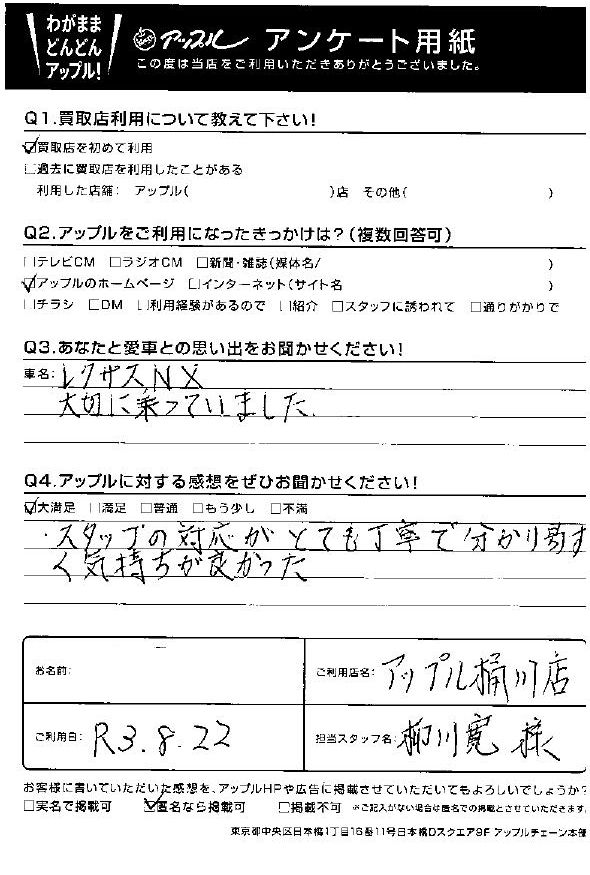 わがまま
どんどん
アップル!
アップル アンケート用紙
この度は当店をご利用いただきありがとうございました。
Q1.買取店利用について教えて下さい!
☑買取店を初めて利用
□過去に買取店を利用したことがある
利用した店舗: アップル( )店 その他( )
Q2.アップルをご利用になったきっかけは?(複数回答可)
□テレビCM □ラジオCM □新聞・雑誌(媒体名/ )
☑アップルのホームページ □インターネット(サイト名 )
□チラシ □DM □利用経験があるので □紹介 □スタッフに誘われて □通りがかりで
Q3.あなたと愛車との思い出をお聞かせください!
車名:レクサスNX
大切に乗っていました.
Q4.アップルに対する感想をぜひお聞かせください!
☑大満足 □満足 □普通 □もう少し □不満
・スタップの対応がとても丁寧で分かり易す
く気持ちが良かった
お名前:
ご利用店名: アップル桶川店
ご利用日: R3.8.22
担当スタッフ名: 柳川寛 様
お客様に書いていただいた感想を、アップルHPや広告に掲載させていただいてもよろしいでしょうか?
□実名で掲載可 ☑匿名なら掲載可 □掲載不可 ※ご記入がない場合は匿名での掲載とさせていただきます。
東京都中央区日本橋1丁目16番11号日本橋Dスクエア9F アップルチェーン本部